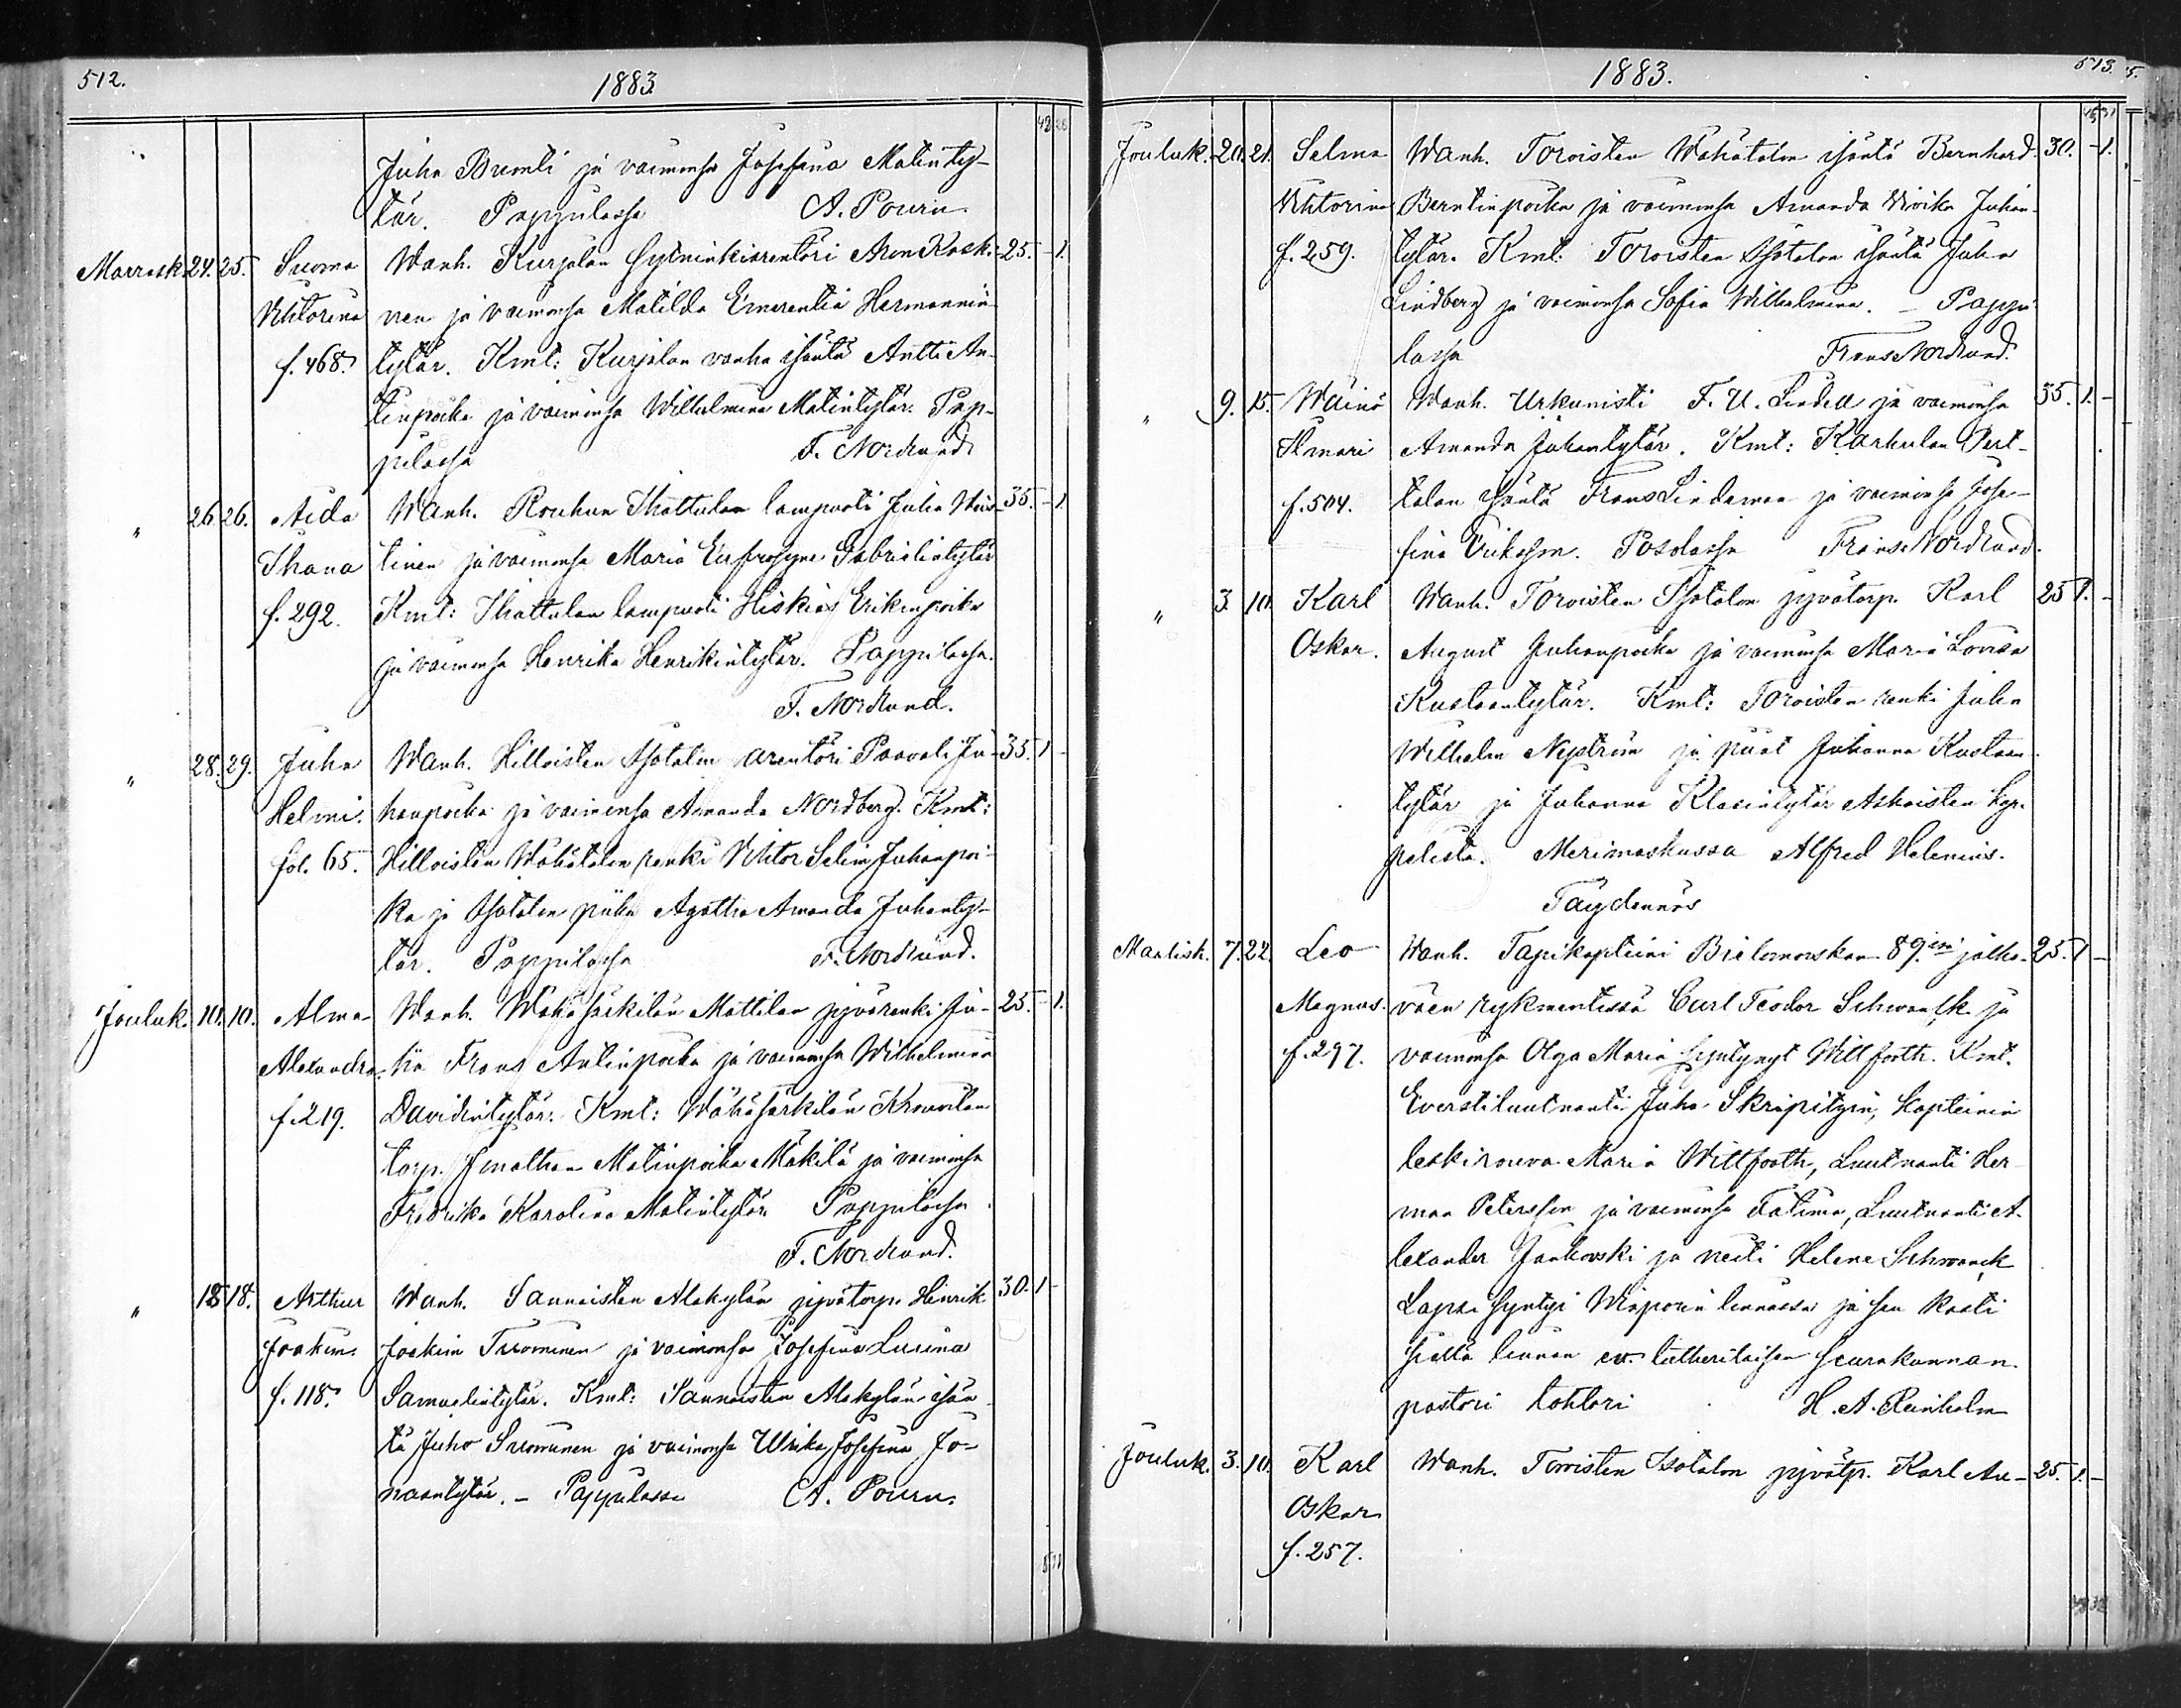 512.
1883
42 28
Juha Brunti ja vaimonsa Josefina Matinty-
tär. Pappilassa A. Pourn.
Marrask. 24. 25. Suoma Wanh. Kurjalan Aron Koski- 25. - 1.
Viktorina nen ja vaimonsa Matilda Emerentia Hermannin
f. 468. tytär. Kmt: Kurjalan vanha isäntä Antti An-
tinpoika ja vaimonsa Wilhelmina Matintytär. Pap-
pilassa F. Nordlund.
" 26. 26. Aida Wanh. Rouhun Ihattulan lampuoti Juha 35. - 1
Ihana tinen ja vaimonsa Maria Eufrosyne Gabrielintytär
f. 292. Kmt: Ihattulan lampuoti Hiskias Erikinpoika
ja vaimonsa Henrika Henrikintytär. Pappilassa.
F. Nordlund.
" 28. 29. Juha Wanh. Hilloisten Isotalon arentöri Paavali Ju- 35. 1 -
Helmi. hanpoika ja vaimonsa Amanda Nordberg. Kmt:
fol. 65. Hilloisten Wähätalon renki Viktor Selim Juhanpoi-
ka ja Isotalon piika Agatha Amanda Juhanty-
tär. Pappilassa F. Nordlund.
Jouluk. 10. 10. Alma Wanh. Wähäsärkilän Mattilan jyvärenki Ju- 25. - 1.
Alexandra ha Frans Antinpoika ja vaimonsa Wilhelmina
f. 219. Davidintytär. Kmt: Wähäsärkilän
torp. Jonathan Matinpoika Mäkilä ja vaimonsa
Fredrika Karolina Matintytär Pappilassa.
F. Nordlund.
" 18 18. Arthur Wanh. Sannaisten Alakylän jyvätorp. Henrik 30. 1 -
Joakim. Joakim Tuominen ja vaimonsa Josefina Lusina
f. 118. Samuelintytär. Kmt: Sannaisten Alakylän isän-
tä Juho Suominen ja vaimonsa Ulrika Josefina Jo-
naantytär. - Pappilassa A. Pourn.
1883.
513.
Jouluk. 20. 21. Selma Wanh. Toroisten Wähätalon isäntä Bernhard 30. - 1.
Viktorina Berntinpoika ja vaimonsa Amanda Wivika Juhan-
f. 259. tytär. Kmt: Toroisten Isotalon isäntä Juha
Lindberg ja vaimonsa Sofia Wilhelmina. - Pappi-
lassa Frans Nordlund.
" 9. 15. Wäinö Wanh. Urkunisti F. U. Lindell ja vaimonsa 35. 1. -
Ilmari Amanda Juhantytär. Kmt: Karhulan Pert-
f. 504. talan isäntä Frans Lindeman ja vaimonsa Jose-
fina Erikson. Frans Nordlund.
" 3. 10. Karl Wanh. Toroisten Isotalon jyvätorp. Karl 25 1. -
Oskar. August Juhanpoika ja vaimonsa Maria Lovisa
Kustaantytär. Kmt: Toroisten renki Juha
Wilhelm Nyström ja piiat Juhanna Kustaan-
tytär ja Juhanna Klasintytär Askaisten kap-
pelista. Merimaskussa Alfred Helenius.
Täydennös
Maalisk. 7. 22. Leo Wanh. Tapikapteini Bielomorskan 89. jalka- 25. 1 -
Magnus. väen rykmentissä Carl Teodor Schwanck ja
f. 297. vaimonsa Olga Maria syntynyt Wittfooth. Kmt.
Everstiluutnantti Juho Skripitzin, Kapteinin
leskirouva Maria Wittfooth, Luutnantti Her-
man Petersson ja vaimonsa Fatima, Luutnantti A-
lexander Jankovski ja neiti Helene Schwanck
Lapsi syntyi Wiaporin linnassa ja sen kasti
siellä linnan ev. lutherilaisen seurakunnan
pastori tohtori H. A. Reinholm
Jouluk. 3. 10. Karl Wanh. Toroisten Isotalon jyvätp. Karl Au- 25. 1. -
Oskar
f. 257.